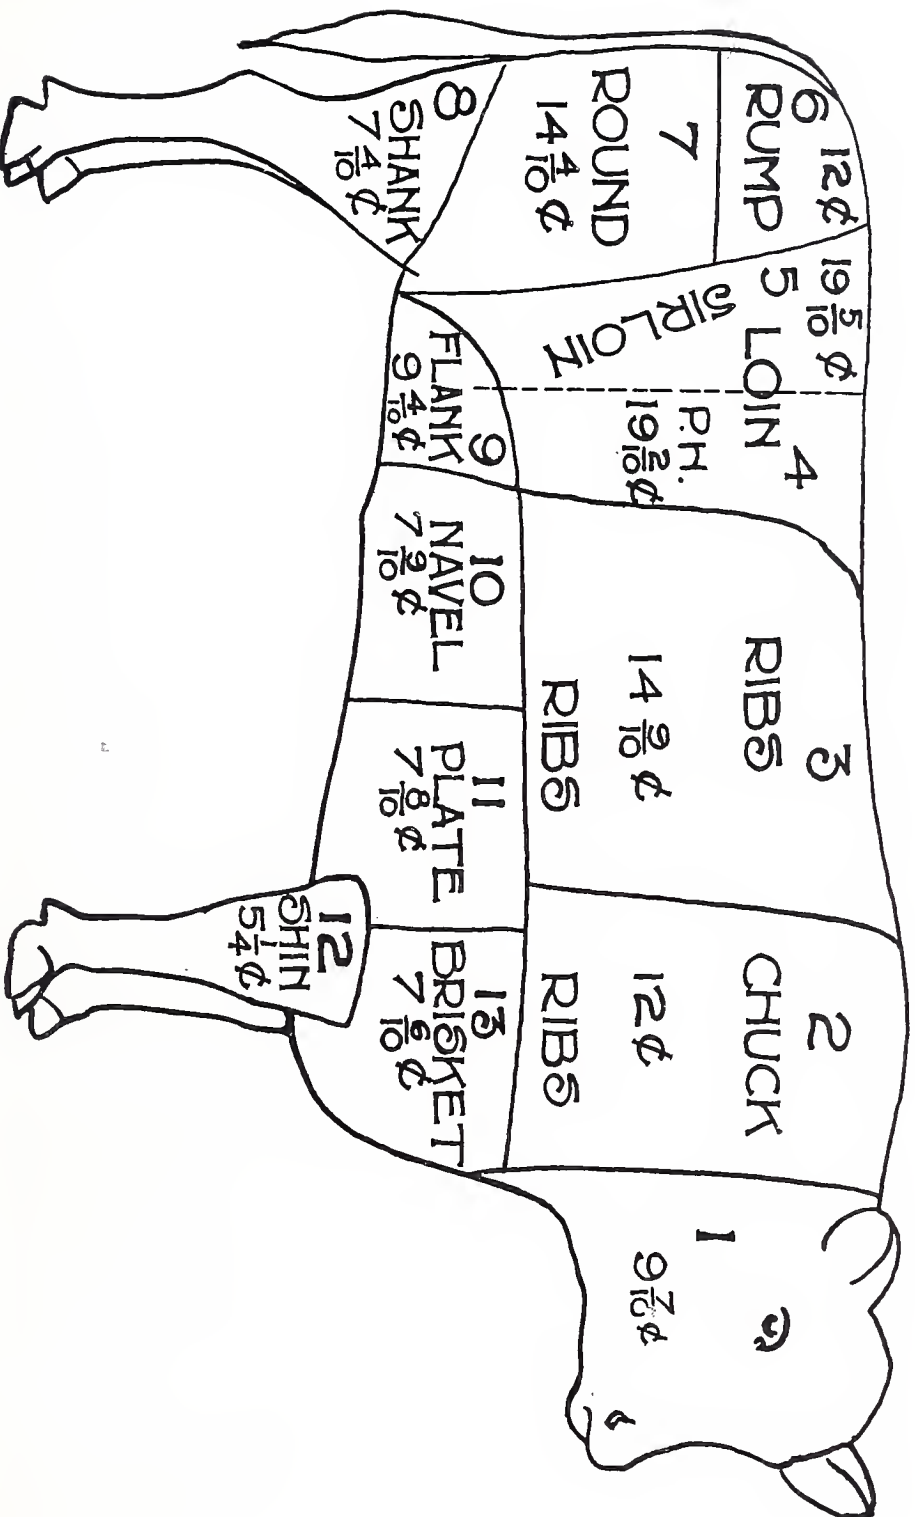 1
9 7/10 ¢
2
CHUCK
12¢
RIBS
3
RIBS
14 9/10 ¢
RIBS
4
P.H.
19 2/10 ¢
LOIN
5
19 5/10 ¢
SIRLOIN
6
12¢
RUMP
7
ROUND
14 4/10 ¢
8
SHANK
7 4/10 ¢
9
FLANK
9 4/10 ¢
10
NAVEL
7 9/10 ¢
11
PLATE
7 8/10 ¢
12
SHIN
5 1/4 ¢
13
BRISKET
7 6/10 ¢